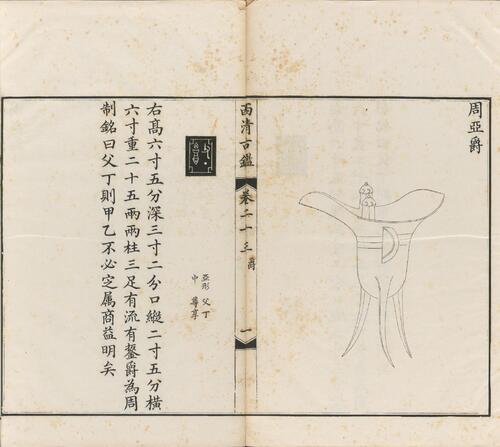 周亞爵
西清古鑑
卷二十三 爵
一
亞形 父丁
中 尊享
右高六寸五分深三寸二分口縱二寸五分橫
六寸重二十五兩兩柱三足有流有鋬爵為周
制銘曰父丁則甲乙不必定属商益明矣